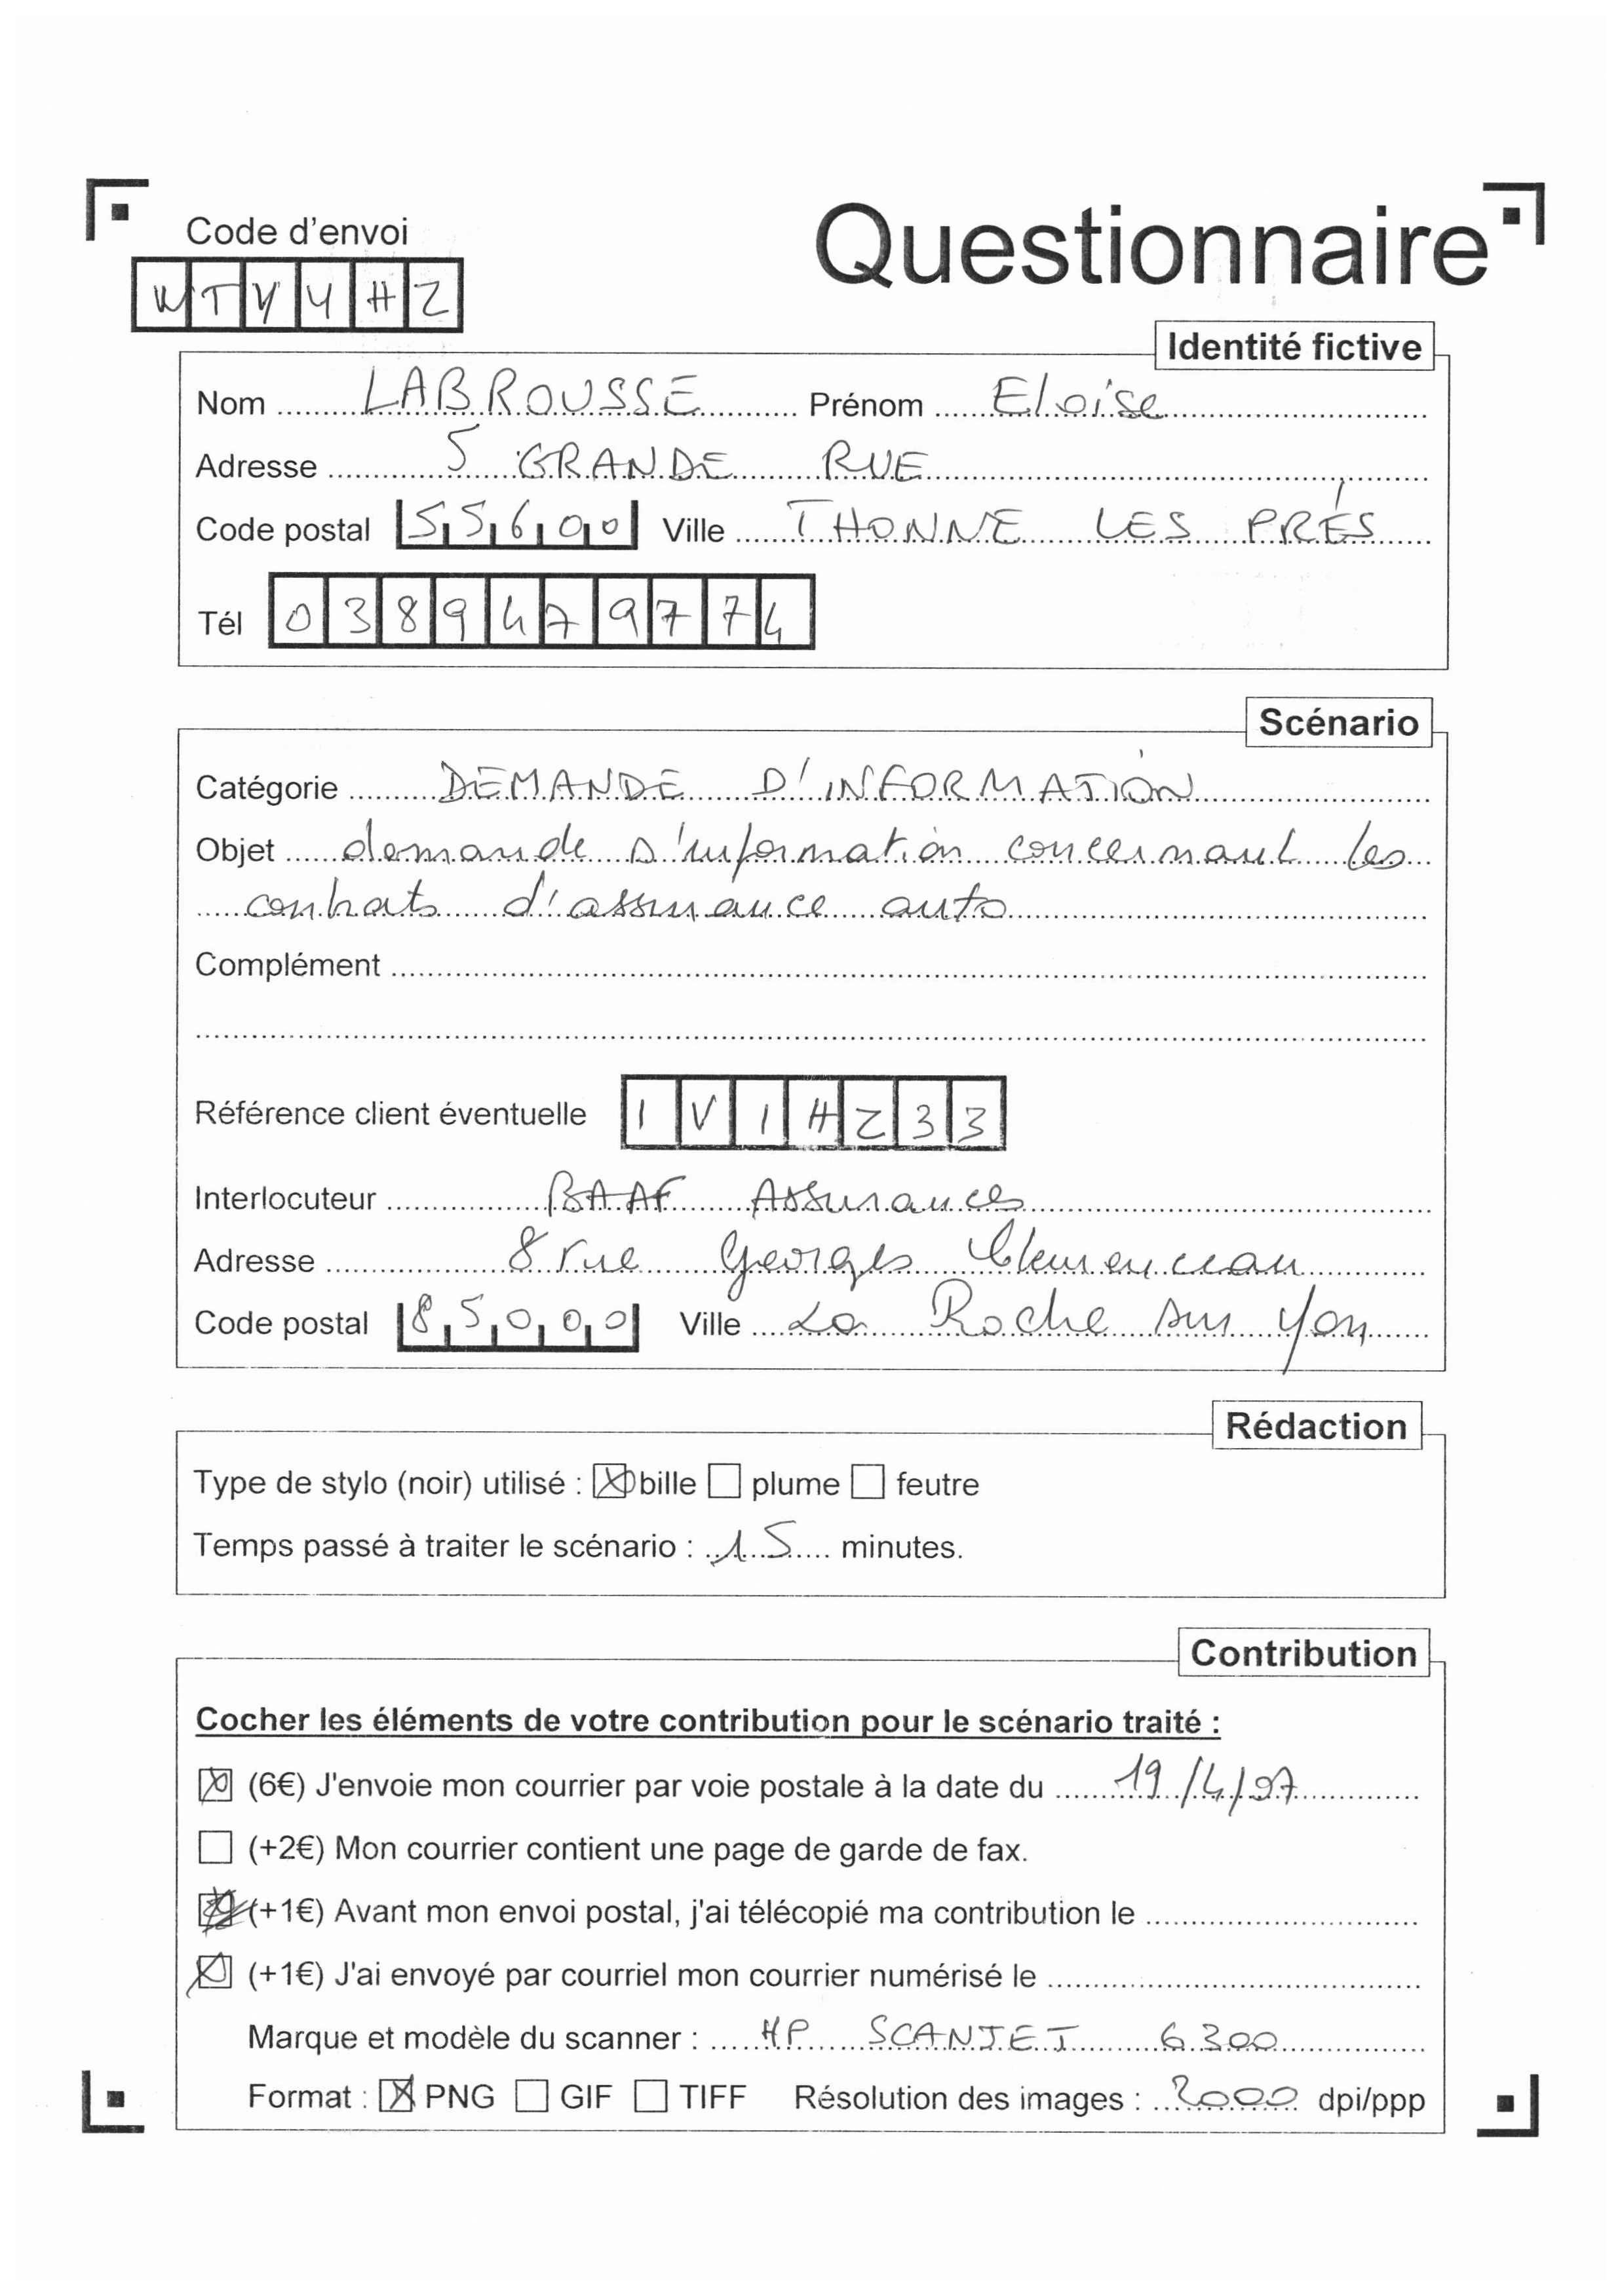 Questionnaire
Code d'envoi
WTYYHZ
Identité fictive
Nom LABROUSSE Prénom Eloïse
Adresse 5 GRANDE RUE
Code postal 55600 Ville THONNE LES PRÉS
Tél 0389479774
Scénario
Catégorie DEMANDE D'INFORMATION
Objet demande d'information concernant les
contrats d'assurance auto
Complément
Référence client éventuelle IVIHZ33
Interlocuteur BAAF Assurances
Adresse 8 rue Georges Clemenceau
Code postal 85000 Ville La Roche sur Yon
Rédaction
Type de stylo (noir) utilisé : bille plume feutre
Temps passé à traiter le scénario : 15 minutes.
Contribution
Cocher les éléments de votre contribution pour le scénario traité :
(6€) J'envoie mon courrier par voie postale à la date du 19/4/07
(+2€) Mon courrier contient une page de garde de fax.
(+1€) Avant mon envoi postal, j'ai télécopié ma contribution le
(+1€) J'ai envoyé par courriel mon courrier numérisé le
Marque et modèle du scanner : HP SCANJET 6300
Format : PNG GIF TIFF Résolution des images : 2000 dpi/ppp